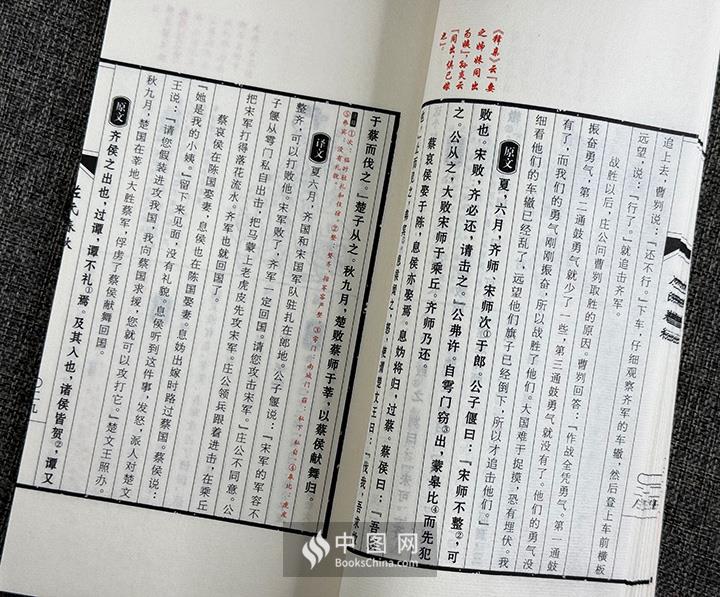 《释亲》云“妻
之姊妹同出
为姨”，孙炎云
“同出，俱已嫁
也”。
追上去，曹刿说：“还不行。”下车，仔细观察齐军的车辙，然后登上车前横板
远望，说：“行了。”就追击齐军。
战胜以后，庄公问曹刿取胜的原因。曹刿回答：“作战全凭勇气。第一通鼓
振奋勇气，第二通鼓勇气就少了一些，第三通鼓勇气就没有了。他们的勇气没
有了，而我们的勇气刚刚振奋，所以战胜了他们。大国难于捉摸，恐有埋伏。我
细看他们的车辙已经乱了，远望他们旗子已经倒下，所以才追击他们。”
原文 夏，六月，齐师、宋师次①于郎。公子偃曰：“宋师不整②，可
败也。宋败，齐必还，请击之。”公弗许。自雩门窃③出，蒙皋比④而先犯
之。公从之。大败宋师于乘丘。齐师乃还。
蔡哀侯娶于陈，息侯亦娶焉。息妫将归，过蔡。蔡侯曰：“吾
于蔡而伐之。”楚子从之。秋九月，楚败蔡师于莘，以蔡侯献舞归。
①次：临时驻扎和住宿。②整：整齐，指军容严整。③雩门：南城门。窃：私下，私自。④皋比：虎皮
⑤弗宾：没有礼貌。
译文 夏六月，齐国和宋国军队驻扎在郎地。公子偃说：“宋军的军容不
整齐，可以打败他。宋军败了，齐军一定回国。请您攻击宋军。”庄公不同意。公
子偃从雩门私自出击，把马蒙上老虎皮先攻宋军。庄公领兵跟着进击，在乘丘
把宋军打得落花流水。齐军也就回国了。
蔡哀侯在陈国娶妻，息侯也在陈国娶妻。息妫出嫁时路过蔡国。蔡侯说：
“她是我的小姨。”留下来见面，没有礼貌。息侯听到这件事，发怒，派人对楚文
王说：“请您假装进攻我国，我向蔡国求援，您就可以攻打它。”楚文王照办。
秋九月，楚国在莘地大胜蔡军，俘虏了蔡侯献舞回国。
原文 齐侯之出也，过谭，谭不礼①焉。及其入也，诸侯皆贺②，谭又
左氏春秋
〇二九
中图网
BooksChina.com